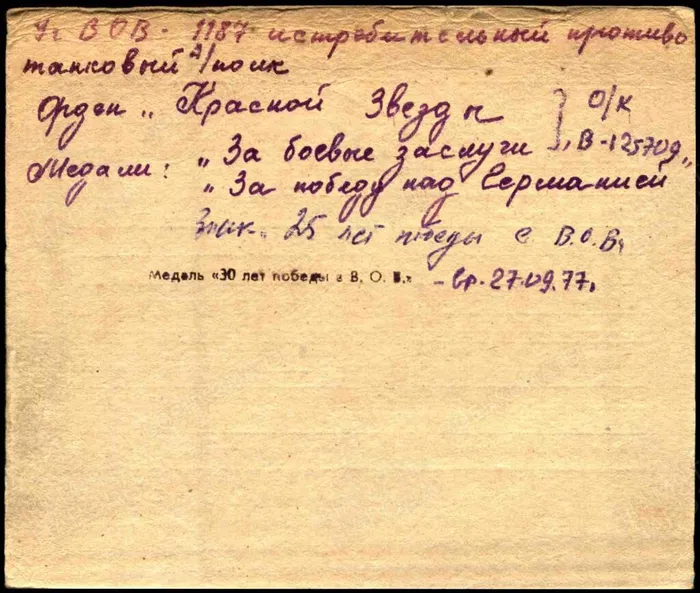 Уч ВОВ - 1187 истребительный противо
танковый А/полк
Орден „ Красной Звезды О/к
Медали: „За боевые заслуги „В-125709„
„За победу над Германией"
Знак „ 25 лет победы в В.О.В„
Медаль «30 лет победы в В. О. В.» - вр. 27.09.77„